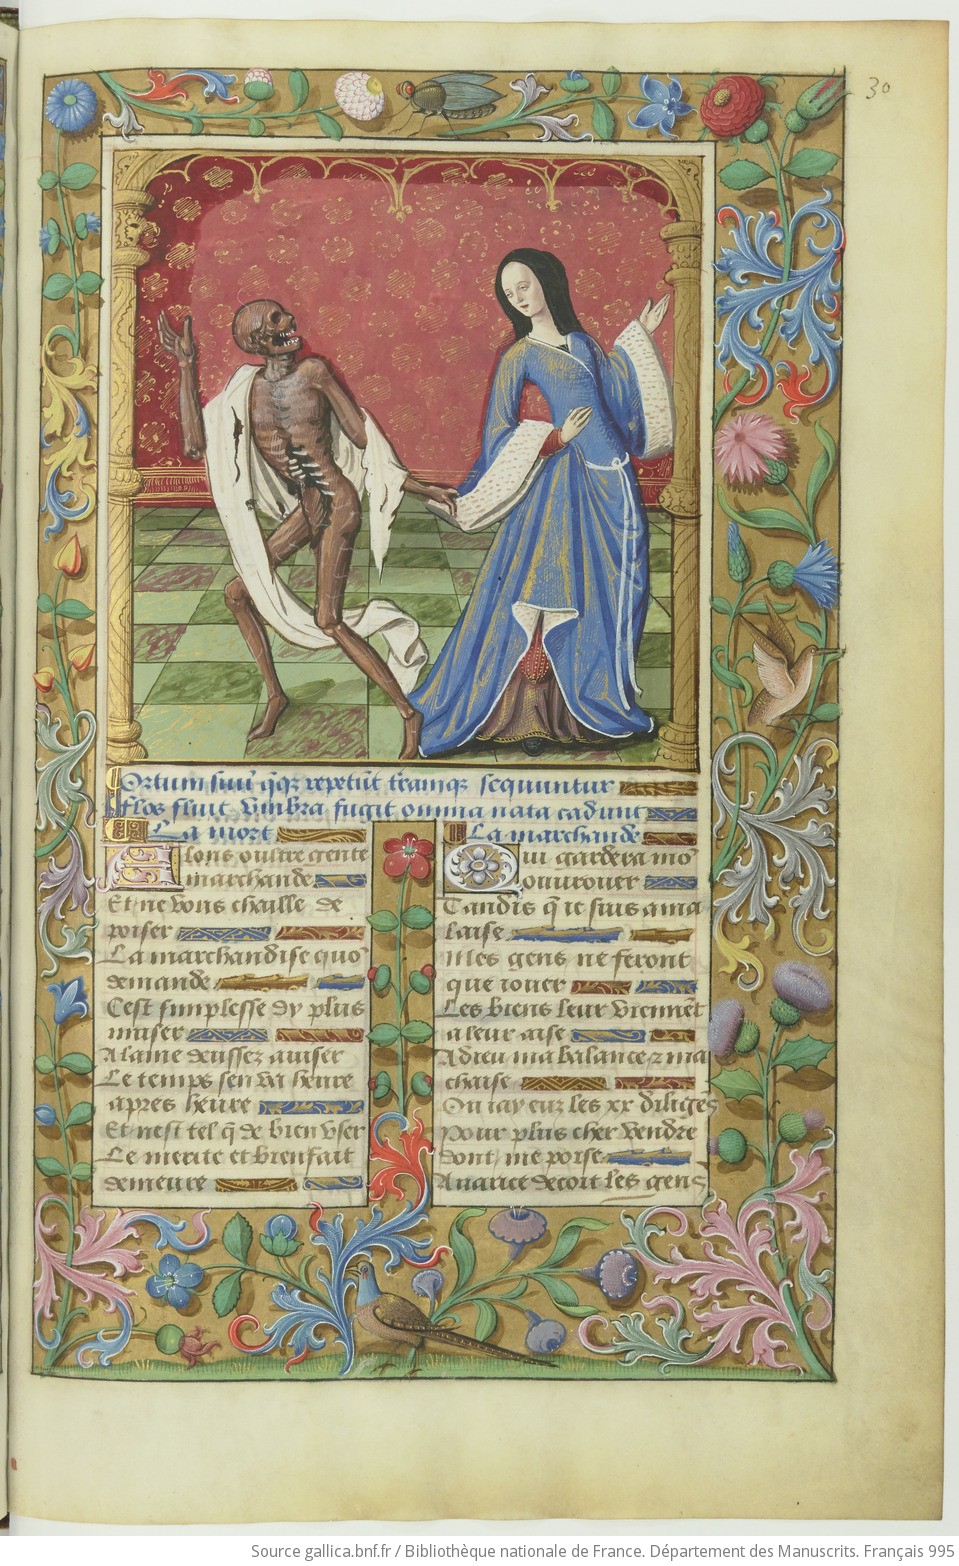 30
Ortum suũ q̃q̃ repetũt t̃ramq̃ sequuntur
Flos fluit vmbra fugit omnia nata cadunt
La mort
Alons oultre gente
marchande
Et ne vous chaille de
poiser
La marchandise quõ
demande
Cest simplesse dy plus
muser
A lame deussez auiser
Le temps sen va heure
apres heure
Et nest tel q̃ de bien vser
Le merite et bienfait
demeure
La marchande
Qui gardera mõ
ouurouer
Tandis q̃ ie suis a ma
laise
Mes gens ne feront
que iouer
Les biens leur viennẽt
a leur aise
Adieu ma balance ⁊ ma
chaise
Ou iay euz les xx diligẽs
Pour plus cher vendre
dont me poise
Auarice decoit les gens
Source gallica.bnf.fr / Bibliothèque nationale de France. Département des Manuscrits. Français 995